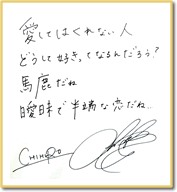 愛してはくれない人
どうして好きってなるんだろう?
馬鹿だね
曖昧で半端な恋だね...
CHIHIRO